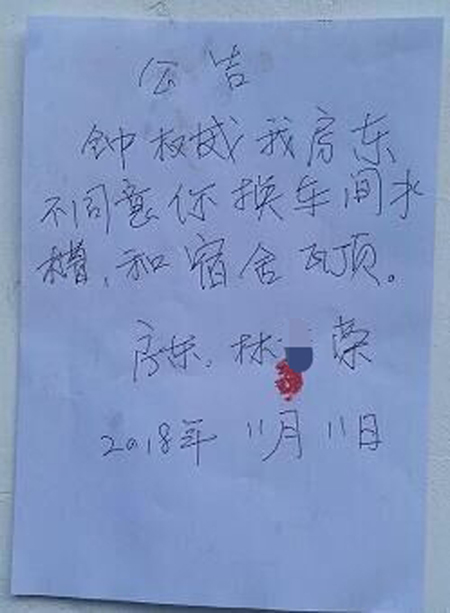 公告
钟权威我房东
不同意你换车间水
槽,和宿舍瓦顶。
房东,林荣
2018年11月11日